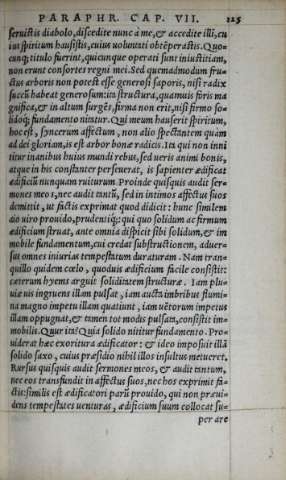 PARAPHR. CAP. VII. 225
seruistis diabolo, discedite nunc à me, & accedite illi, cu
ius spiritum hausistis, cuius uoluntati obtẽperastis. Quo-
cunq; titulo fuerint, quicunque operati sunt iniustitiam,
non erunt consortes regni mei. Sed quemadmodum fru-
ctus arboris non potest esse generosi saporis, nisi radix
succū habeat generosum: ita structura, quamuis foris ma
gnifica, & in altum surgẽs, firma non erit, nisi firmo so-
lidoq; fundamento nixa. Qui meum hauserit spiritum,
hoc est, syncerum affectum, non alio spectantem quàm
ad dei gloriam, is est arbor bonæ radicis. Ita qui non inni
titur inanibus huius mundi rebus, sed ueris animi bonis,
atque in his constanter perseuerat, is sapienter ædificat
ædificiū nunquam ruiturum. Proinde quisquis audit ser-
mones meos, nec audit tantū, sed in intimos affectus suos
demittit, ut factis exprimat quod didicit: hunc similem
aio uiro prouido, prudentiq;: qui quo solidum ac firmum
ædificium struat, ante omnia dispicit sibi solidum, & im
mobile fundamentum, cui credat substructionem, aduer-
sus omnes iniurias tempestatum duraturam. Nam tran-
quillo quidem cœlo, quoduis ædificium facile consistit:
cæterum hyems arguit soliditatem structuræ. Iam plu-
uiæ uis ingruens illam pulsat, iam aucta imbribus flumi-
na magno impetu illam quatiunt, iam uẽtorum impetus
illam oppugnat, & tamen tot modis pulsata, consistit im-
mobilis. Quur ita? Quia solido nititur fundamento. Pro-
uiderat hæc exoritura ædificator: & ideo imposuit illā
solido saxo, cuius præsidio nihil illos insultus metueret.
Rursus quisquis audit sermones meos, & audit tantum,
nec eos transfundit in affectus suos, nec hos exprimit fa-
ctis: similis est ædificatori parū prouido, qui non præui-
dens tempestates uenturas, ædificium suum collocat su-
per are